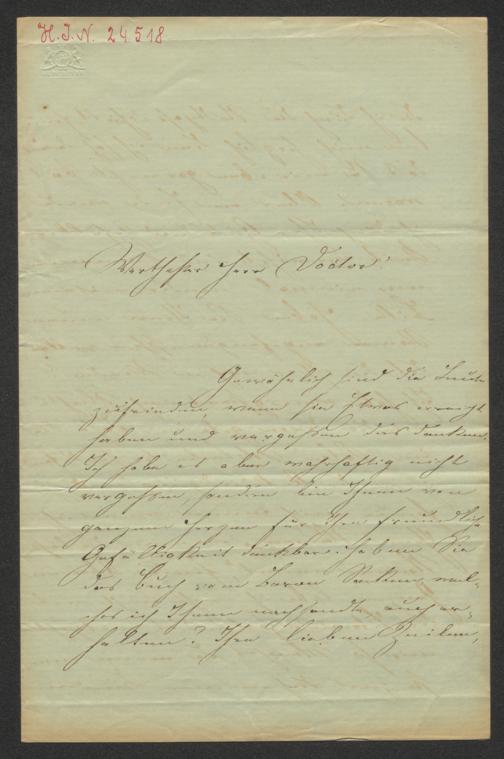 H. I. N. 24518
Werthester Herr Doctor!
Gewöhnlich sind die Leute
zufrieden, wenn sie Etwas erreicht
haben und vergessen das Danken.
Ich habe es aber wahrhaftig nicht
vergessen, sondern bin Ihnen von
ganzem Herzen für Ihre freundliche
Gefälligkeit dankbar. Haben Sie
das Buch vom Baron, wel-
ches ich Ihnen nachsandte auch er-
halten? Ihre lieben Zeilen,